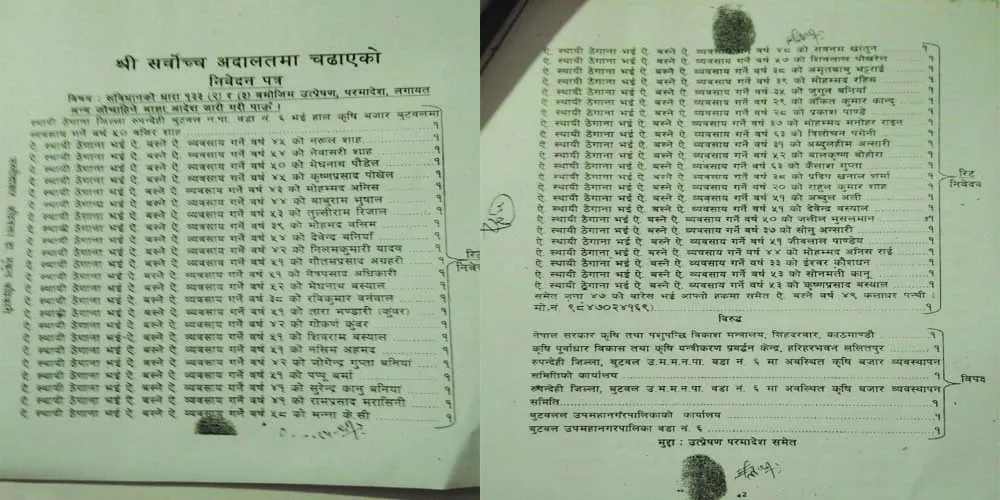 श्री सर्वोच्च अदालतमा चढाएको
निवेदन पत्र
विषय : संविधानको धारा १३३ (२) र (३) बमोजिम उत्प्रेषण, परमादेश, लगायत
अन्य जोचाहिने आज्ञा आदेश जारी गरी पाऊँ ।
स्थायी ठेगाना जिल्ला रुपन्देही बुटवल न.पा. वडा नं. ६ भई हाल कृषि बजार बुटवलमा
व्यवसाय गर्ने वर्ष ५० बजिर शाह १
ऐ. स्थायी ठेगाना भई ऐ. बस्ने ऐ. व्यवसाय गर्ने वर्ष ४४ को नरुल शाह १
ऐ. स्थायी ठेगाना भई ऐ. बस्ने ऐ. व्यवसाय गर्ने वर्ष ५४ को नेवासरी शाह १
ऐ. स्थायी ठेगाना भई ऐ. बस्ने ऐ. व्यवसाय गर्ने वर्ष ५० को मेघनाथ पौडेल १
ऐ. स्थायी ठेगाना भई ऐ. बस्ने ऐ. व्यवसाय गर्ने वर्ष ४५ को कृष्णप्रसाद पोखेल १
ऐ. स्थायी ठेगाना भई ऐ. बस्ने ऐ. व्यवसाय गर्ने वर्ष ४३ को मोहम्मद अनिस १
ऐ. स्थायी ठेगाना भई ऐ. बस्ने ऐ. व्यवसाय गर्ने वर्ष ४४ को बाबुराम भुषाल १
ऐ. स्थायी ठेगाना भई ऐ. बस्ने ऐ. व्यवसाय गर्ने वर्ष ५३ को तुल्सीराम रिजाल १
ऐ. स्थायी ठेगाना भई ऐ. बस्ने ऐ. व्यवसाय गर्ने वर्ष ३९ को मोहमद वसिम १
ऐ. स्थायी ठेगाना भई ऐ. बस्ने ऐ. व्यवसाय गर्ने वर्ष ५४ को देवेन्द्र बनियाँ १
ऐ. स्थायी ठेगाना भई ऐ. बस्ने ऐ. व्यवसाय गर्ने वर्ष ४२ को निलमकुमारी यादव १
ऐ. स्थायी ठेगाना भई ऐ. बस्ने ऐ. व्यवसाय गर्ने वर्ष ५१ को गौतमप्रसाद अग्रहरी १
ऐ. स्थायी ठेगाना भई ऐ. बस्ने ऐ. व्यवसाय गर्ने वर्ष ५१ को नेत्रप्रसाद अधिकारी १
ऐ. स्थायी ठेगाना भई ऐ. बस्ने ऐ. व्यवसाय गर्ने वर्ष ५२ को मेघनाथ बस्याल १
ऐ. स्थायी ठेगाना भई ऐ. बस्ने ऐ. व्यवसाय गर्ने वर्ष ३८ को रविकुमार वर्नवाल १
ऐ. स्थायी ठेगाना भई ऐ. बस्ने ऐ. व्यवसाय गर्ने वर्ष ५१ को तारा भण्डारी (कुंवर) १
ऐ. स्थायी ठेगाना भई ऐ. बस्ने ऐ. व्यवसाय गर्ने वर्ष ४२ को गोकर्ण कुंवर १
ऐ. स्थायी ठेगाना भई ऐ. बस्ने ऐ. व्यवसाय गर्ने वर्ष ५१ को शिवराम बस्याल १
ऐ. स्थायी ठेगाना भई ऐ. बस्ने ऐ. व्यवसाय गर्ने वर्ष ५१ को नसिम अहमद १
ऐ. स्थायी ठेगाना भई ऐ. बस्ने ऐ. व्यवसाय गर्ने वर्ष ४२ को जोगेन्द्र गुप्ता बनियाँ १
ऐ. स्थायी ठेगाना भई ऐ. बस्ने ऐ. व्यवसाय गर्ने वर्ष ५१ को पप्पू वर्मा १
ऐ. स्थायी ठेगाना भई ऐ. बस्ने ऐ. व्यवसाय गर्ने वर्ष ४१ को सुरेन्द्र कानु बनिया १
ऐ. स्थायी ठेगाना भई ऐ. बस्ने ऐ. व्यवसाय गर्ने वर्ष ४१ को रामप्रसाद मरासिनी १
ऐ. स्थायी ठेगाना भई ऐ. बस्ने ऐ. व्यवसाय गर्ने वर्ष ५८ को मन्ना के.सी १
रिट
निवेदक
ऐ. स्थायी ठेगाना भई ऐ. बस्ने ऐ. व्यवसाय गर्ने वर्ष ४८ को सवनम खातुन १
ऐ. स्थायी ठेगाना भई ऐ. बस्ने ऐ. व्यवसाय गर्ने वर्ष ५७ को शिवलाल पोखरेल १
ऐ. स्थायी ठेगाना भई ऐ. बस्ने ऐ. व्यवसाय गर्ने वर्ष ३८ को अमृतबाबु भट्टराई १
ऐ. स्थायी ठेगाना भई ऐ. बस्ने ऐ. व्यवसाय गर्ने वर्ष ३९ को मोहम्मद रहिस १
ऐ. स्थायी ठेगाना भई ऐ. बस्ने ऐ. व्यवसाय गर्ने वर्ष ३५ को जुगुन बनियाँ १
ऐ. स्थायी ठेगाना भई ऐ. बस्ने ऐ. व्यवसाय गर्ने वर्ष २९ को अंकित कुमार कान्दु १
ऐ. स्थायी ठेगाना भई ऐ. बस्ने ऐ. व्यवसाय गर्ने वर्ष २८ को प्रकाश पाण्डे १
ऐ. स्थायी ठेगाना भई ऐ. बस्ने ऐ. व्यवसाय गर्ने वर्ष ३७ को मोहम्मद मनोहर राइन १
ऐ. स्थायी ठेगाना भई ऐ. बस्ने ऐ. व्यवसाय गर्ने वर्ष ६३ को त्रिलोचन पंगेनी १
ऐ. स्थायी ठेगाना भई ऐ. बस्ने ऐ. व्यवसाय गर्ने वर्ष ३१ को अब्दुलहीम अन्सारी १
ऐ. स्थायी ठेगाना भई ऐ. बस्ने ऐ. व्यवसाय गर्ने वर्ष ५२ को बालकृष्ण बोहोरा १
ऐ. स्थायी ठेगाना भई ऐ. बस्ने ऐ. व्यवसाय गर्ने वर्ष ६३ को कैलाश गुप्ता १
ऐ. स्थायी ठेगाना भई ऐ. बस्ने ऐ. व्यवसाय गर्ने वर्ष ३८ को प्रदिप खनाल शर्मा १
ऐ. स्थायी ठेगाना भई ऐ. बस्ने ऐ. व्यवसाय गर्ने वर्ष २० को राहुल कुमार शाह १
ऐ. स्थायी ठेगाना भई ऐ. बस्ने ऐ. व्यवसाय गर्ने वर्ष ५१ को अब्दुल अली १
ऐ. स्थायी ठेगाना भई ऐ. बस्ने ऐ. व्यवसाय गर्ने वर्ष ५१ को देवेन्द्र बस्याल १
ऐ. स्थायी ठेगाना भई ऐ. बस्ने ऐ. व्यवसाय गर्ने वर्ष ५० को जलील मुसलमान १
ऐ. स्थायी ठेगाना भई ऐ. बस्ने ऐ. व्यवसाय गर्ने वर्ष ३७ को सोनु अन्सारी १
ऐ. स्थायी ठेगाना भई ऐ. बस्ने ऐ. व्यवसाय गर्ने वर्ष ५१ जीवलाल पाण्डेय १
ऐ. स्थायी ठेगाना भई ऐ. बस्ने ऐ. व्यवसाय गर्ने वर्ष ४४ को मोहम्मद अनिस राई १
ऐ. स्थायी ठेगाना भई ऐ. बस्ने ऐ. व्यवसाय गर्ने वर्ष ३३ को ईश्वर कौशधन १
ऐ. स्थायी ठेगाना भई ऐ. बस्ने ऐ. व्यवसाय गर्ने वर्ष ५३ को सोनमती कानू १
ऐ. स्थायी ठेगाना भई ऐ. बस्ने ऐ. व्यवसाय गर्ने वर्ष ५३ को कृष्णप्रसाद बस्याल १
समेत जना ४७ को वारेस भई आफ्नो हकमा समेत ऐ. बस्ने वर्ष ४९ कलाधर पन्थी (
मो.नं. ९८४७०२४१६९) १
रिट
निवेदक
विरुद्ध
नेपाल सरकार कृषि तथा पशुपन्छि विकास मन्त्रालय, सिंहदरबार, काठमाण्डौ १
कृषि पूर्वाधार विकास तथा कृषि यन्त्रीकरण प्रवर्द्धन केन्द्र, हरिहरभवन ललितपुर १
रुपन्देही जिल्ला, बुटवल उ.म.न.पा. वडा नं. ६ मा अवस्थित कृषि बजार व्यवस्थापन
समितिको कार्यालय १
रुपन्देही जिल्ला, बुटवल उ.म.न.पा. वडा नं. ६ मा अवस्थित कृषि बजार व्यवस्थापन
समिति १
बुटवलल उपमहानगरपालिकाको कार्यालय १
बुटवल उपमहानगरपालिका वडा नं. ६ १
विपक्ष
मुद्दा : उत्प्रेषण परमादेश समेत
2